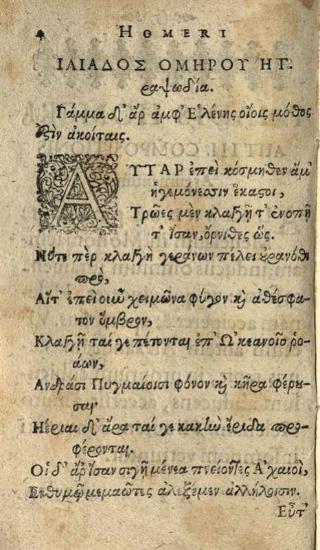 HOMERI
ΙΛΙΑΔΟΣ ΟΜΗΡΟΥ Η Γ.
ῥαψωδία.
Γάμμα δ' ἄρ ἀμφ' Ἑλένης οἴοις μόθος
ὀξὶν ἀκοίταις.
ΑΥΤΑΡ ἐπεὶ κόσμηθεν ἅμ'
ἡγεμόνεσσιν ἕκαστοι,
Τρῶες μὲν κλαγγῇ τ' ἐνοπῇ
τ' ἴσαν, ὄρνιθες ὥς.
Ηΰτε πὲρ κλαγγὴ γεράνων πέλει οὐρανόθι
πρὸ,
Αἵτ' ἐπεὶ οὖν χειμῶνα φύγον καὶ ἀθέσφα-
τον ὄμβρον,
Κλαγγῇ ταί γε πέτονται ἐπ' Ὠκεανοῖο ῥο-
άων,
Ἀνδράσι Πυγμαίοισι φόνον καὶ κῆρα φέρου-
σαι·
Ἠέριαι δ' ἄρα ταί γε κακὴν ἔριδα προ-
φέρονται.
Οἱ δ' ἄρ' ἴσαν σιγῇ μένεα πνείοντες Ἀχαιοί,
Ἐν θυμῷ μεμαῶτες ἀλεξέμεν ἀλλήλοισιν.
Εὖτ'